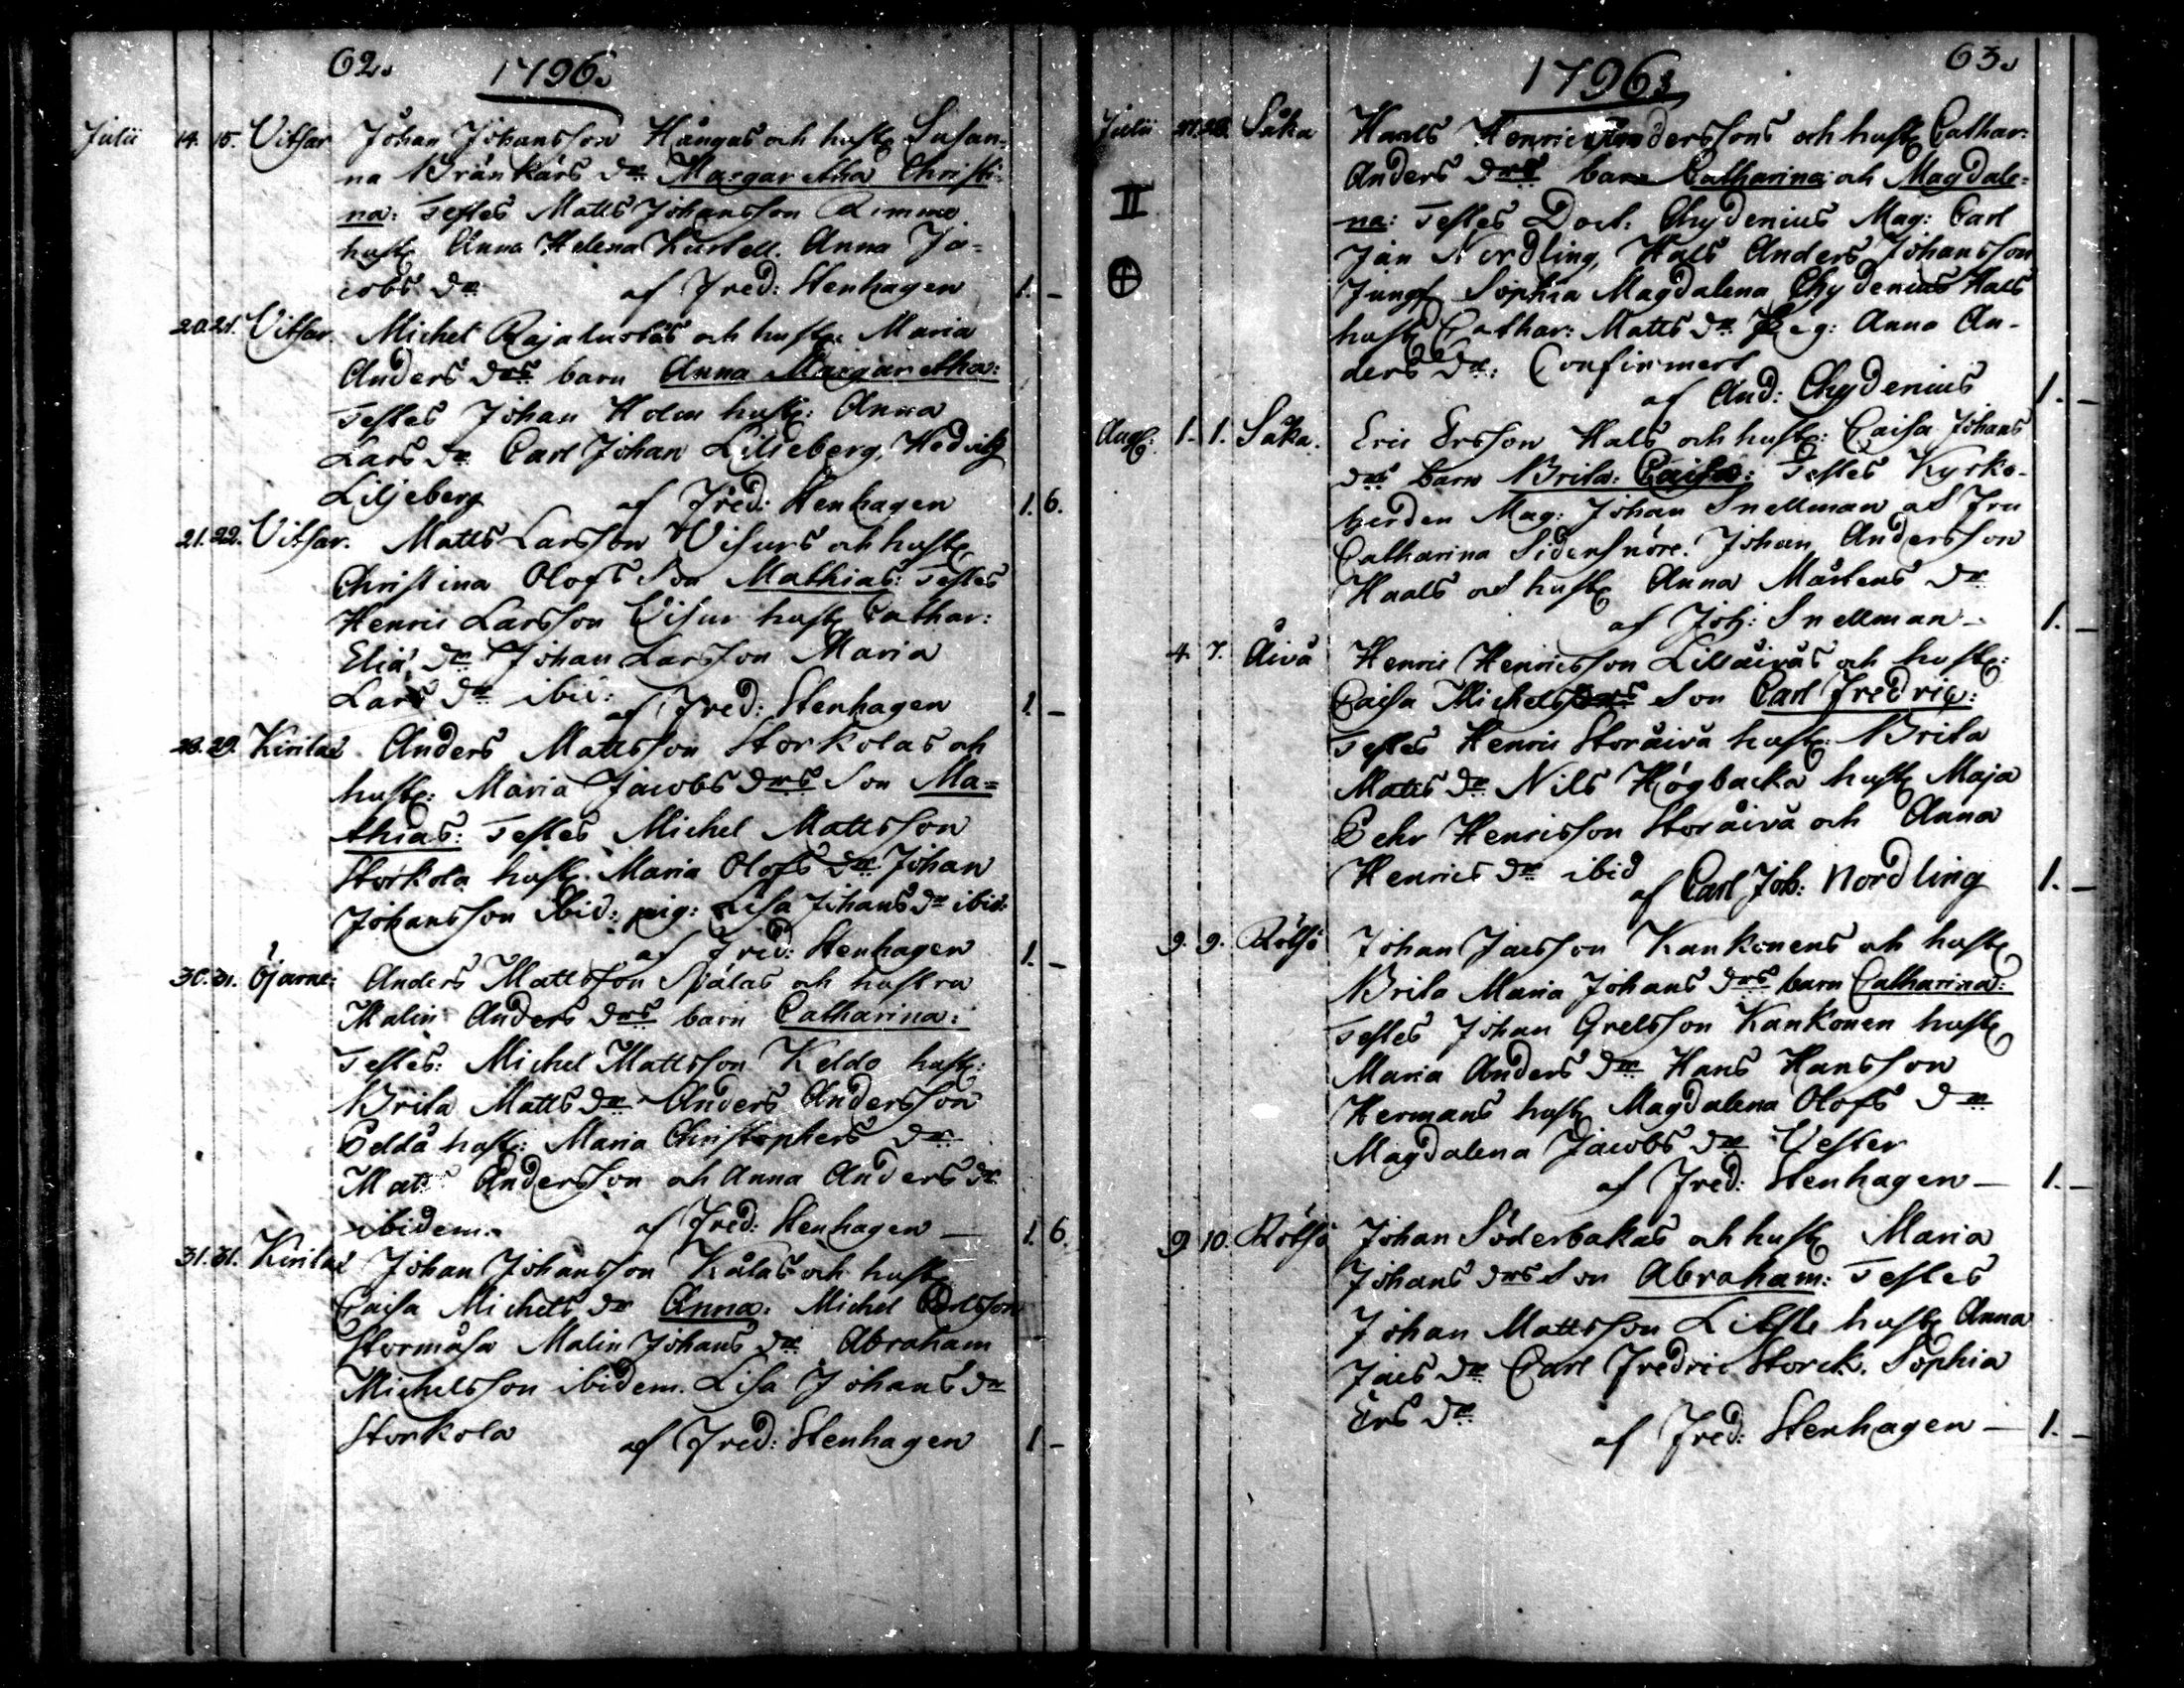 62.
1796.
Julii 14. 15. Vitsar Johan Johansson Hångas och hust: Susan-
na Bränkärs dr Margaretha Christi-
na: Testes Matts Johansson Rimmo
hust: Anna Helena Kurtell. Anna Ja-
cobs dr af Fred: Stenhagen 1. –
20. 21. Vitsar Michel Rajalusbås och hust: Maria
Anders drs barn Anna Margaretha:
Testes Johan Holm hust: Anna
Lars dr Carl Johan Liljeberg, Hedvig
Liljeberg af Fred: Stenhagen 1. 6.
21. 22. Vitsar. Matts Larsson Visurs och hust:
Christina Olofs Son Mathias: Testes
Henric Larsson Visur hust: Cathar:
Elia dr Johan Larsson Maria
Lars dr ibid: af Fred: Stenhagen 1. –
28. 29. Kirilax Anders Mattsson Storkolas och
hust: Maria Jacobs drs Son Ma=
thias: Testes Michel Mattsson
Storkola hust: Maria Olofs dr Johan
Johansson ibid: pig: Lisa Johans dr ibid:
af Fred: Stenhagen 1. –
30. 31. Öjarne: Anders Mattsson Spålas och hustru
Malin Anders drs barn Catharina:
Testes: Michel Mattsson Keldo hust:
Brita Matts dr Anders Andersson
Peldå hust: Maria Christophers dr
Mats Andersson och Anna Anders dr
ibidem. af Fred: Stenhagen – 1. 6.
31. 31. Kirilax Johan Johansson Kålas och hust:
Caisa Michels dr Anna: Michel
Stormåsa Malin Johans dr Abraham
Michelsson ibidem. Lisa Johans dr
Storkola af Fred: Stenhagen 1 –
63.
1796.
Julii 27. 28. Såka Haals Henric Anderssons och hust: Cathar:
Anders drs barn Catharina och Magdale-
II na: Testes Doct. Chydenius Mag: Carl
Jan Nordling, Hals Anders Johansson
Jungf Sophia Magdalena Chydenius Hals
hust: Cathar: Matts dr Pig: Anna An-
ders dr: Confirmert
af And: Chydenius 1. –
Aug: 1. 1. Såka. Eric Ersson Hals och hust: Caisa Johans
drs barn Brita Caisa: Testes Kyrko-
herden Mag: Johan Snellman och Fru
Catharina Sidensnöre. Johan Andersson
Haals och hust: Anna Mårtens dr
af Joh: Snellman – 1. –
4. 7. Åivå Henric Henricsson Lillåivås och hust:
Caisa Michels Son Carl Fredric:
Testes Henric Storåivå hust: Brita
Matts dr Nils Högbacka hust: Maja
Pehr Henricsson Storåivå och Anna
Henrics dr ibid af Carl Joh: Nordling 1. –
9. 9. Rötsö Johan Jacsson Kankonens och hust:
Brita Maria Johans drs barn Catharina:
Testes Johan Grelsson Kankonen hust:
Maria Anders dr Hans Hansson
Hermans hust: Magdalena Olofs dr
Magdalena Jacobs dr Vester
af Fred: Stenhagen – 1. –
9. 10. Rötsö Johan Söderbakas och hust: Maria
Johans drs Son Abraham: Testes
Johan Mattsson Litsle hust: Anna
Jacs dr Carl Fredric Storck. Sophia
Ers dr
af Fred: Stenhagen – 1. –